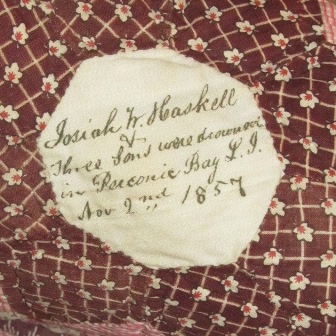 Josiah W Haskell
&
three Sons were drowned
in Peconic Bay L. I.
Nov 2nd 1857